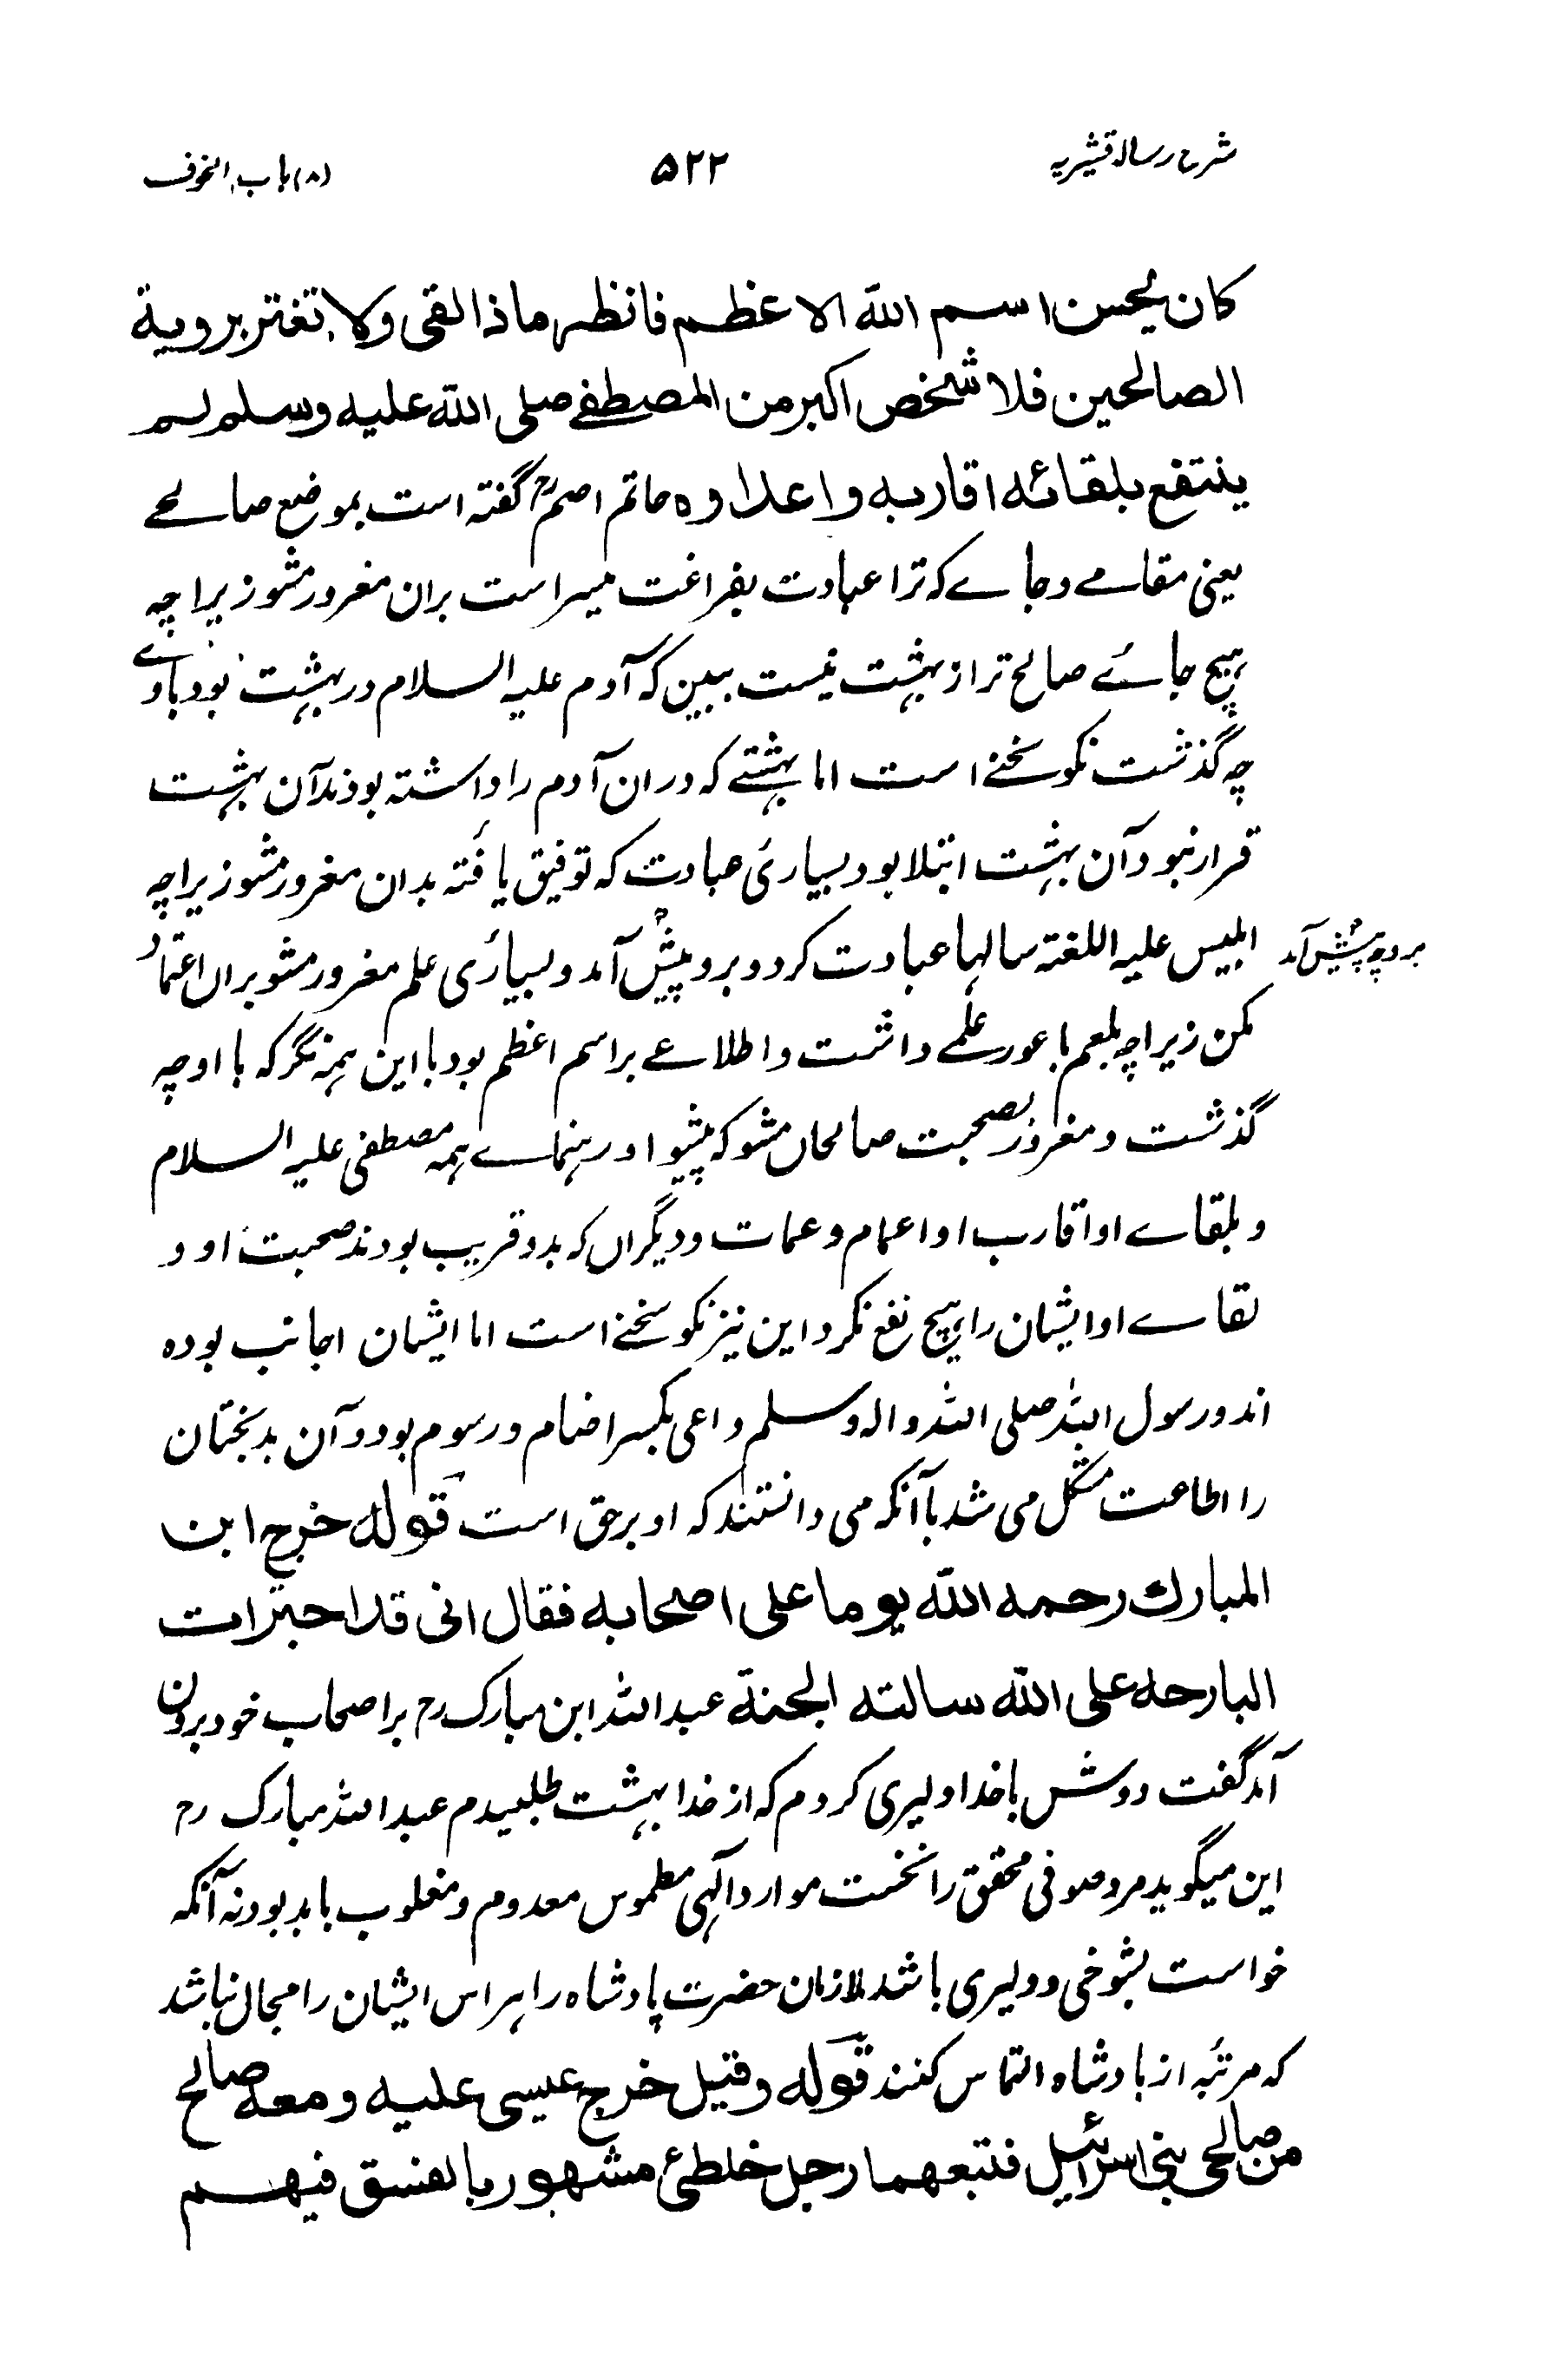 شرح رسالہ قشیریہ
۵۲۲
(۸) باب الخوف
کان یحسن اسم اللہ الاعظم فانظر ماذا لقی ولا تغتر بروية
الصالحین فلا شخص اکبر من المصطفے صلی اللہ علیہ وسلم لم
ینتفع بلقائہ اقاربہ واعداوہ حاتم اصم رح گفتہ است بموضع صالحے
یعنی مقامے وجاے کہ ترا عبادت بفراغت میسر است بران مغرور مشو زیراچہ
ہیچ جاے صالح تر از بہشت نیست ببین کہ آدم علیہ السلام در بہشت بود باوے
چہ گذشت نکو سخنے است اما بہشتے کہ دران آدم را داشتہ بودند آن بہشت
قرار نبود آن بہشت ابتلا بود بسیاری عبادت کہ توفیق یافتہ بدان مغرور مشو زیراچہ
ابلیس علیہ اللغتہ سالہا عبادت کرد و برو پیش آمد و بسیاری علم مغرور مشو بران اعتماد
برو چہ پیش آمد
مکن زیراچہ بلعم باعور علمے داشت و اطلاعے بر اسم اعظم بود با این ہمہ نگر کہ با او چہ
گذشت و مغرور بصحبت صالحان مشو کہ پیشوا و رہنماے ہمہ مصطفی علیہ السلام
و بلقاے او اقارب او اعمام و عمات و دیگراں کہ بدو قریب بودند صحبت او و
لقاے او ایشان را ہیچ نفع نکرد این نیز نکو سخنے است اما ایشان اجانب بودہ
اند و رسول اللہ صلی اللہ والہ وسلم داعی بکسر اصنام و رسوم بود و آن بدبختان
را اطاعت مشکل می شد باآنکہ می دانستند کہ او برحق است قولہ خرج ابن
المبارك رحمہ اللہ یوما علی اصحابہ فقال انی قد اجترات
البارحہ علی اللہ سالتہ الجنة عبد اللہ ابن مبارک رح بر اصحاب خود برون
آمد گفت دوش با خدا دلیری کردم کہ از خدا بہشت طلبیدم عبد اللہ مبارک رح
این میگوید مرد صوفی محقق را نخست موارد الٰہی مطموس معدوم و مغلوب باید بود نہ آنکہ
خواست بشوخی و دلیری باشد ملازمان حضرت پادشاہ را ہراس ایشان را مجال نباشد
کہ مرتبہ از بادشاہ التماس کنند قولہ وقیل خرج عیسی علیہ ومعہ صالح
من صالحی بنی اسرائیل فتبعهما رجل خاطئ مشهور بالفسق فیهم